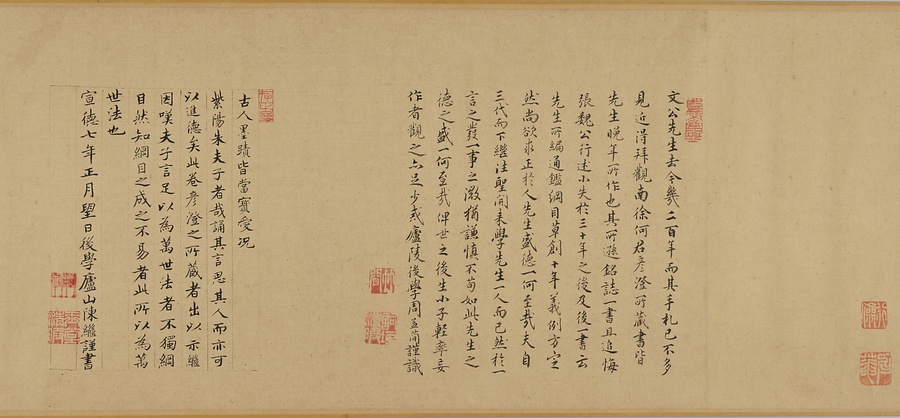 文公先生去今幾二百年而其手札已不多
見近得拜觀南徐何君彦澄所藏書皆
先生晚年所作也其所遜銘誌一書且追悔
張魏公行述小失於三十年之後及後一書云
先生所編通鑑綱目草創十年義例方定
然尚欲求正於人先生盛德一何至哉夫自
三代而下繼往聖開來學先生一人而已然於一
言之發一事之微猶謙慎不苟如此先生之
德之盛一何至哉俾世之後生小子輕率妄
作者觀之亦足少戒廬陵後學周孟簡謹識
古人墨蹟皆當寳愛况
紫陽朱夫子者哉誦其言思其人而亦可
以進德矣此卷彦澄之所蔵者出以示繼
因嘆夫子言足以為萬世法者不獨綱
目然知綱目之成之不易者此所以為萬
世法也
宣德七年正月望日後學廬山陳繼謹書